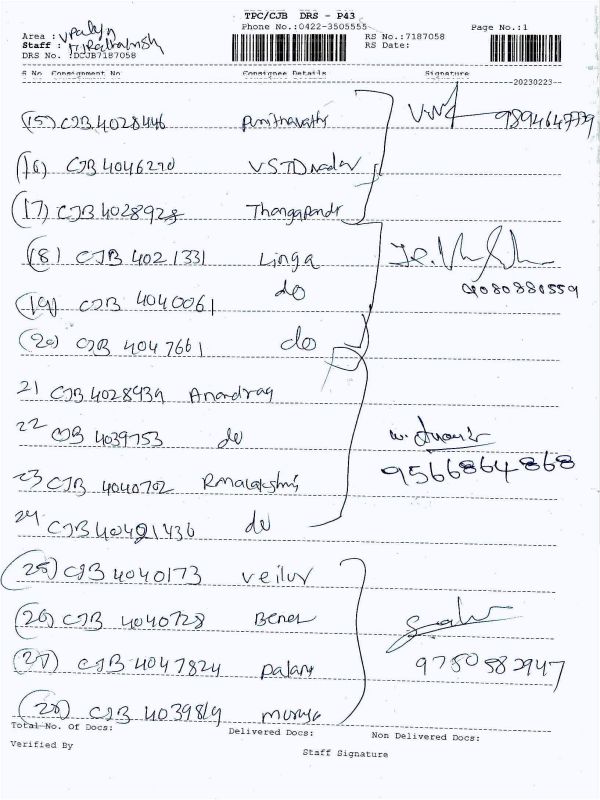 TPC/CJB DRS - P43
Phone No.:0422-3505555 Page No.:1
Area :
Staff : RS No.:7187058
DRS No. :DCJB7187058 RS Date:
S No Consignment No Consignee Details Signature
20230223
(15) CJB 4028446 9894647779
(16) CJB 4046270 VSTD nadar
(17) CJB 4028928
(18) CJB 4021331 Linga
9080880559
(19) CJB 4040061 do
(20) CJB 4047661 do
21 CJB 4028939 Anandrag
22 CJB 4039753 do
9566864868
23 CJB 4040702
24 do
(25) CJB 4040173 veilur
(26) CJB 4040728
(27) CJB 4047824 palany
9750582947
(28) CJB 4039819
Total No. Of Docs: Delivered Docs: Non Delivered Docs:
Verified By Staff Signature